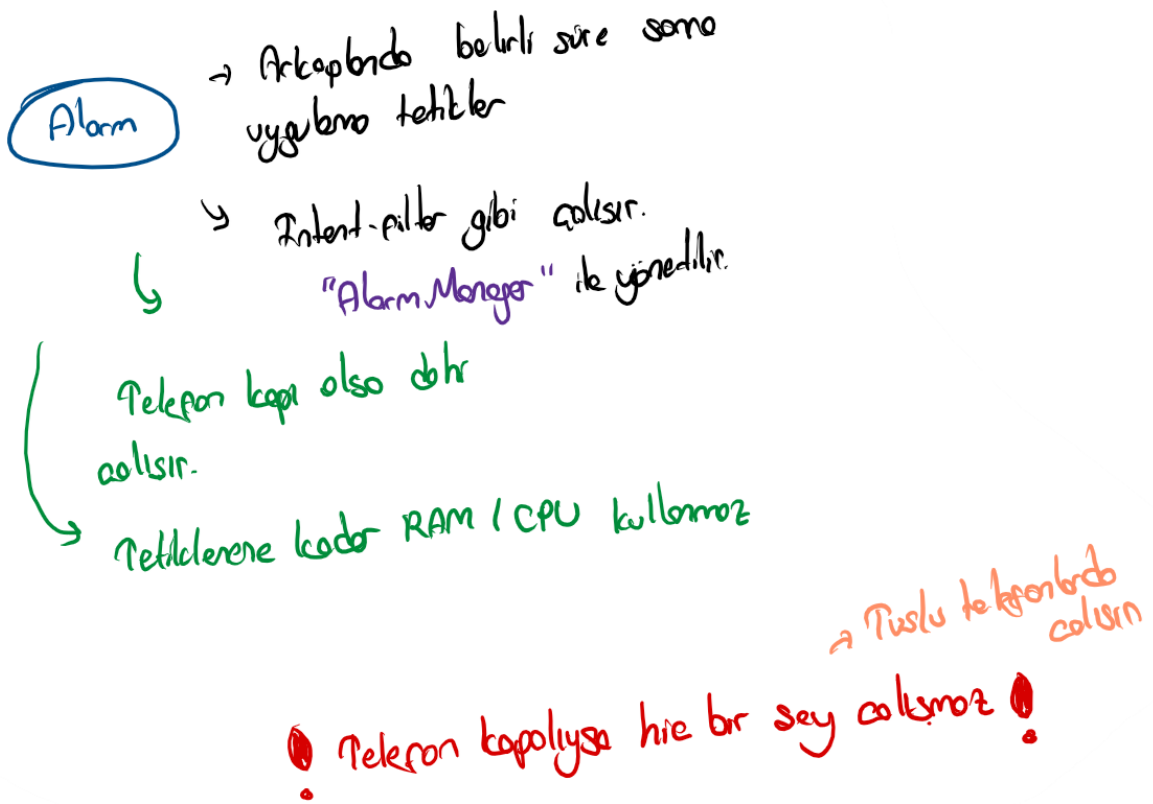 Alarm
→ Arkaplanda belirli süre sonra
uygulama tetikler
↘ Intent-filter gibi çalışır.
"Alarm Manager" ile yönedilir.
Telefon kapı olsa dahi
çalışır.
Tetiklenene kadar RAM / CPU kullanmaz
→ Tuşlu telefonlarda
çalışırı
! Telefon kapalıysa hiç bir şey çalışmaz !